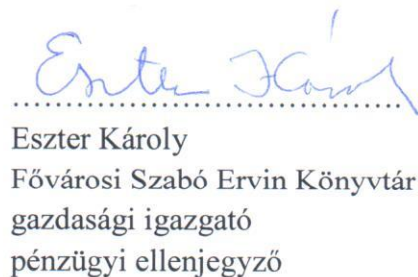 Eszter Károly
................................................
Eszter Károly
Fővárosi Szabó Ervin Könyvtár
gazdasági igazgató
pénzügyi ellenjegyző